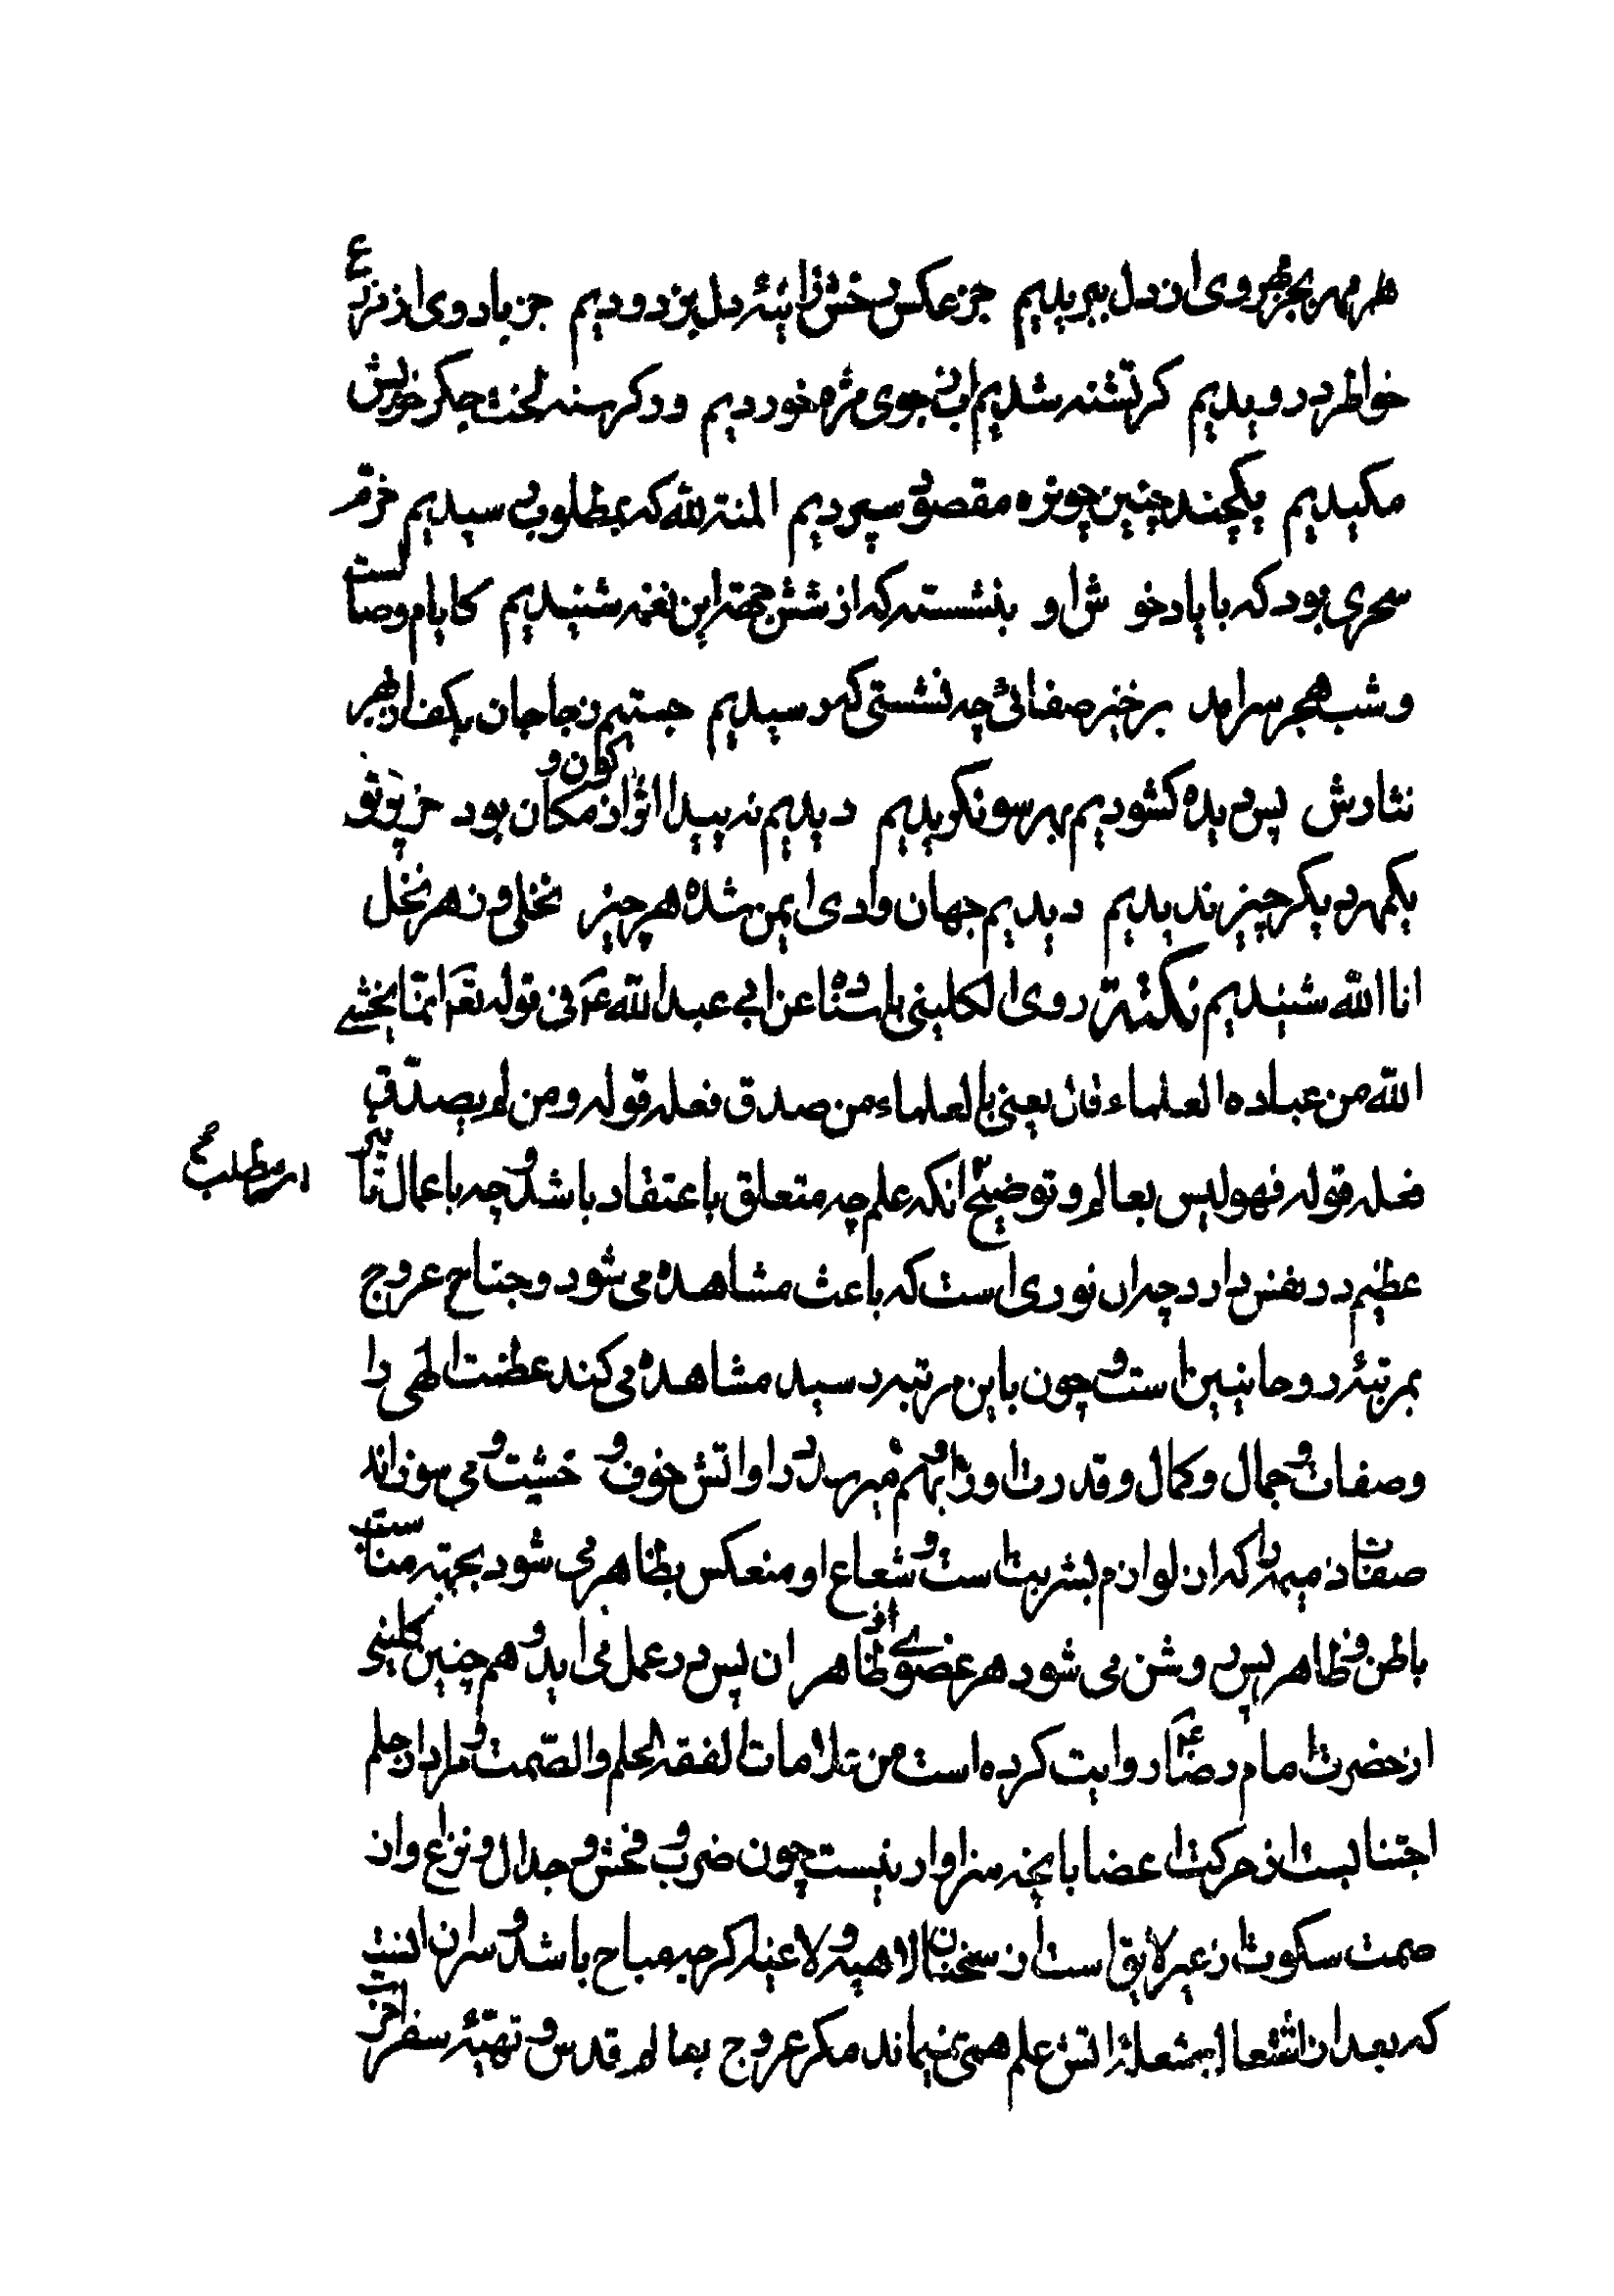 هر مهر بجز مهر وی از دل ببریدیم جز عکس رخش زاینهٔ دل بزدودیم جز یاد وی از مزرع
خواطر درویدیم کر تشنه شدیم اب ز جوی مژه خوردیم ور کرسنه لخت جکر خویش
مکیدیم یکچند چنین چون ره مقصود سپردیم المنة لله که بمطلوب رسیدیم خرم
سحری بود که با یاد خوش او بنشسته که از شش جهت این نغمه شنیدیم کایام وصالست
و شب هجر سرامد برخیز صفائی چه نشستی که رسیدیم جستیم ز جا جان بکف از بهر
نثارش پس دیده کشودیم بهر سو نکریدیم دیدیم نه پیدا اثر از کون و مکان بود جز پرتو
یکمهر دیکر چیز ندیدیم دیدیم جهان وادی ایمن شده هر چیز نخلی و ز هر نخل
انا الله شنیدیم نکتة روی الکلینی باسناده عن ابی عبد الله ع فی قوله تع انما یخشی
الله من عباده العلماء قال یعنی بالعلماء من صدق فعله قوله و من لم یصدق
فعله قوله فهو لیس بعالم و توضیح انکه علم چه متعلق باعتقاد باشد و چه باعمال تاثیر
عظیم در نفس دارد چه ان نوری است که باعث مشاهده می شود و جناح عروج
بمرتبهٔ روحانیین است و چون باین مرتبه رسید مشاهده می کند عظمت الهی را
و صفات و جمال و کمال و قدرت او را و بهم میرسد در او اتش خوف و خشیت و می سوزاند
صفات ذمیمه را که از لوازم بشریت است و شعاع او منعکس بظاهر می شود بجهته مناسبت
باطن و ظاهر پس روشن می شود هر عضوی از ظاهر ان پس در عمل می اید و هم چنین کلینی
از حضرت امام رضا ع روایت کرده است من علامات الفقه الحلم و الصمت و مراد از حلم
اجتنابست از حرکت اعضا بانچه سزاوار نیست چون ضرب و فحش و جدال و نزاع و از
صمت سکوت از غیر لایق است از سخنان لاهیه و لاغیه اکر چه مباح باشد و سر ان انست
که بعد از اشتعال بشعلهٔ اتش علم همی نمیماند مکر عروج بعالم قدس و تهیهٔ سفر اخرت